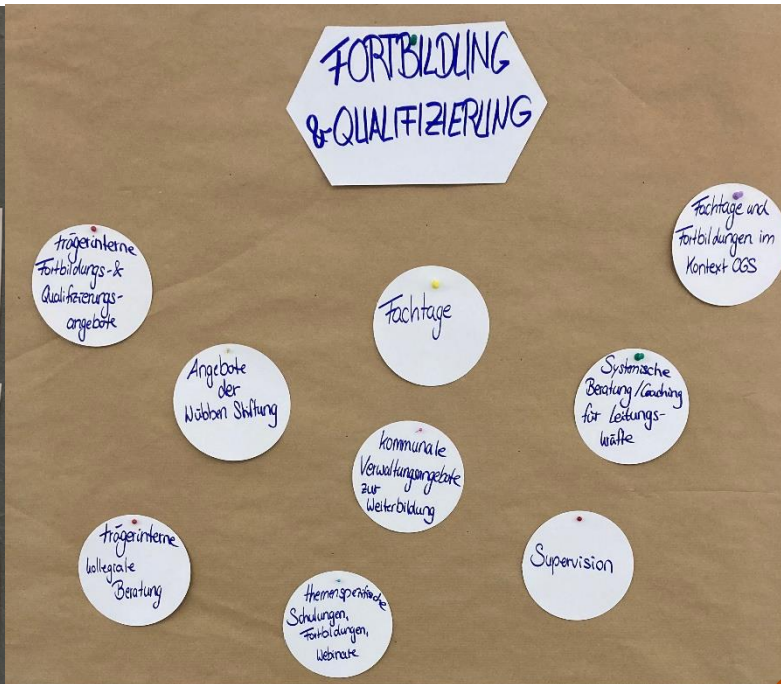 FORTBILDUNG
& QUALIFIZIERUNG
Fachtage und
Fortbildungen im
Kontext OGS
trägerinterne
Fortbildungs- &
Qualifizierungs-
angebote
Fachtage
Angebote
der
Wübben Stiftung
Systemische
Beratung/Coaching
für Leitungs-
kräfte
kommunale
Verwaltungsangebote
zur
Weiterbildung
trägerinterne
kollegiale
Beratung
Supervision
themenspezifische
Schulungen,
Fortbildungen,
Webinare